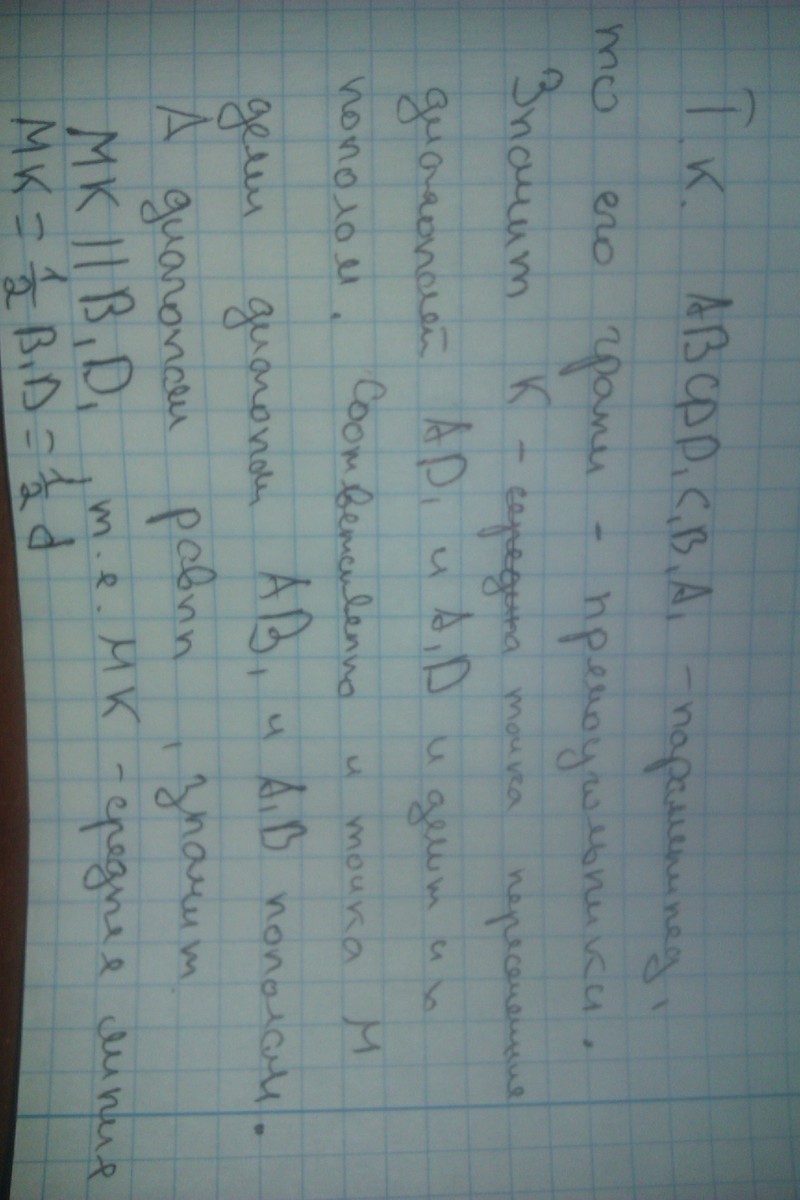 Т.К. ABCDD₁C₁B₁A₁ - параллепипед,
то его грани - прямоугольники.
Значит К - середина точка пересечения
диагоналей AD₁ и A₁D и делит их
пополам. Соответственно и точка М
делит диагонали AB₁ и A₁B пополам.
А диагонали равны, значит
MK || B₁D₁ т.е. MK - средняя линия
MK = 1/2 B₁D = 1/2 d